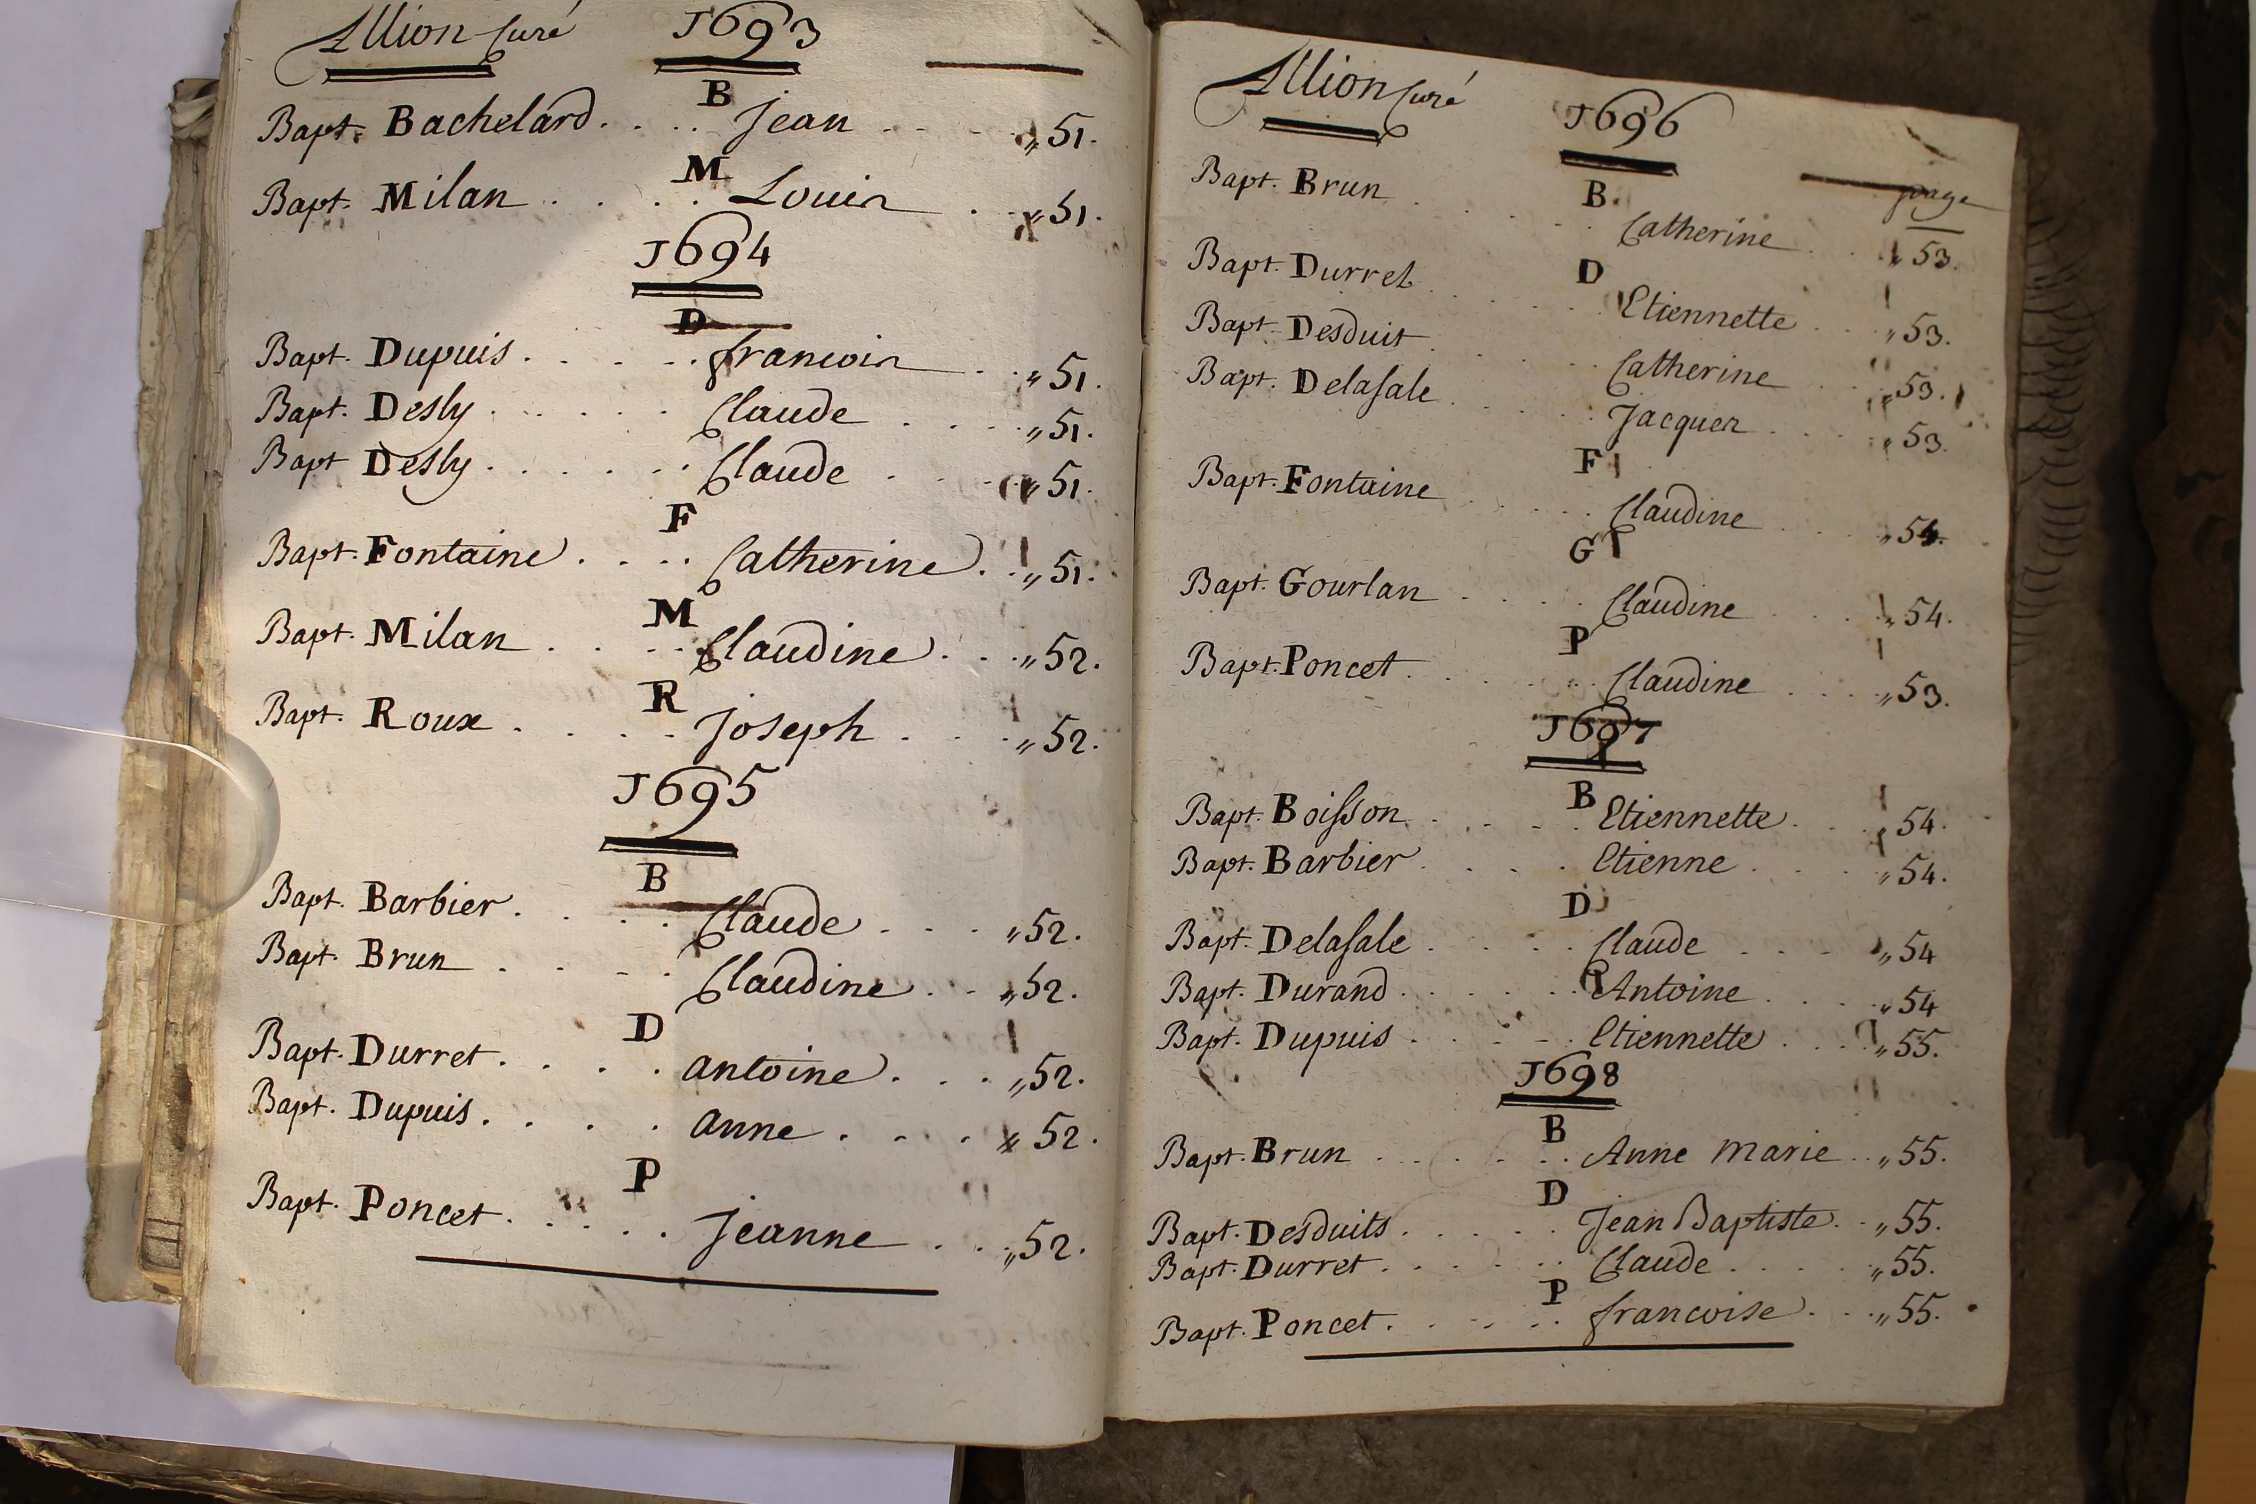 Allion Curé 1693
B
Bapt. Bachelard. . . . Jean . . . . „ 51.
M
Bapt. Milan . . . . Louis . . . „ 51.
1694
D
Bapt. Dupuis . . . . . francois . . „ 51.
Bapt. Desly . . . . . . Claude . . . . „ 51.
Bapt Desly . . . . . . Claude . . . . „ 51.
F
Bapt. Fontaine . . . . Catherine . . „ 51.
M
Bapt. Milan . . . . Claudine . . . „ 52.
R
Bapt. Roux . . . . . Joseph . . . . „ 52.
1695
B
Bapt. Barbier . . . . . Claude . . . „ 52.
Bapt. Brun . . . . Claudine . . „ 52.
D
Bapt. Durret . . . . . antoine . . . „ 52.
Bapt. Dupuis . . . . . anne . . . . „ 52.
P
Bapt. Poncet . . . . . . Jeanne . . . „ 52.
Allion Curé 1696
page
B
Bapt. Brun . . . . . Catherine . . „ 53.
D
Bapt. Durret . . . . . Etiennette . . . „ 53.
Bapt. Desduit . . . . . Catherine . . . „ 53.
Bapt. Delasale . . . . . Jacques . . . . „ 53.
F
Bapt. Fontaine . . . . . Claudine . . . . „ 54.
G
Bapt. Gourlan . . . . . Claudine . . . . „ 54.
P
Bapt. Poncet . . . . . . Claudine . . . . „ 53.
1697
B
Bapt. Boisson . . . . . Etiennette . . . „ 54.
Bapt. Barbier . . . . . Etienne . . . . „ 54.
D
Bapt. Delasale . . . . . Claude . . . . „ 54
Bapt. Durand . . . . . . Antoine . . . . „ 54
Bapt. Dupuis . . . . . . Etiennette . . . . „ 55.
1698
B
Bapt. Brun . . . . . . Anne marie . . „ 55.
D
Bapt. Desduits . . . . . Jean Baptiste . . „ 55.
Bapt. Durret . . . . . . Claude . . . . . „ 55.
P
Bapt. Poncet . . . . . . francoise . . . „ 55.